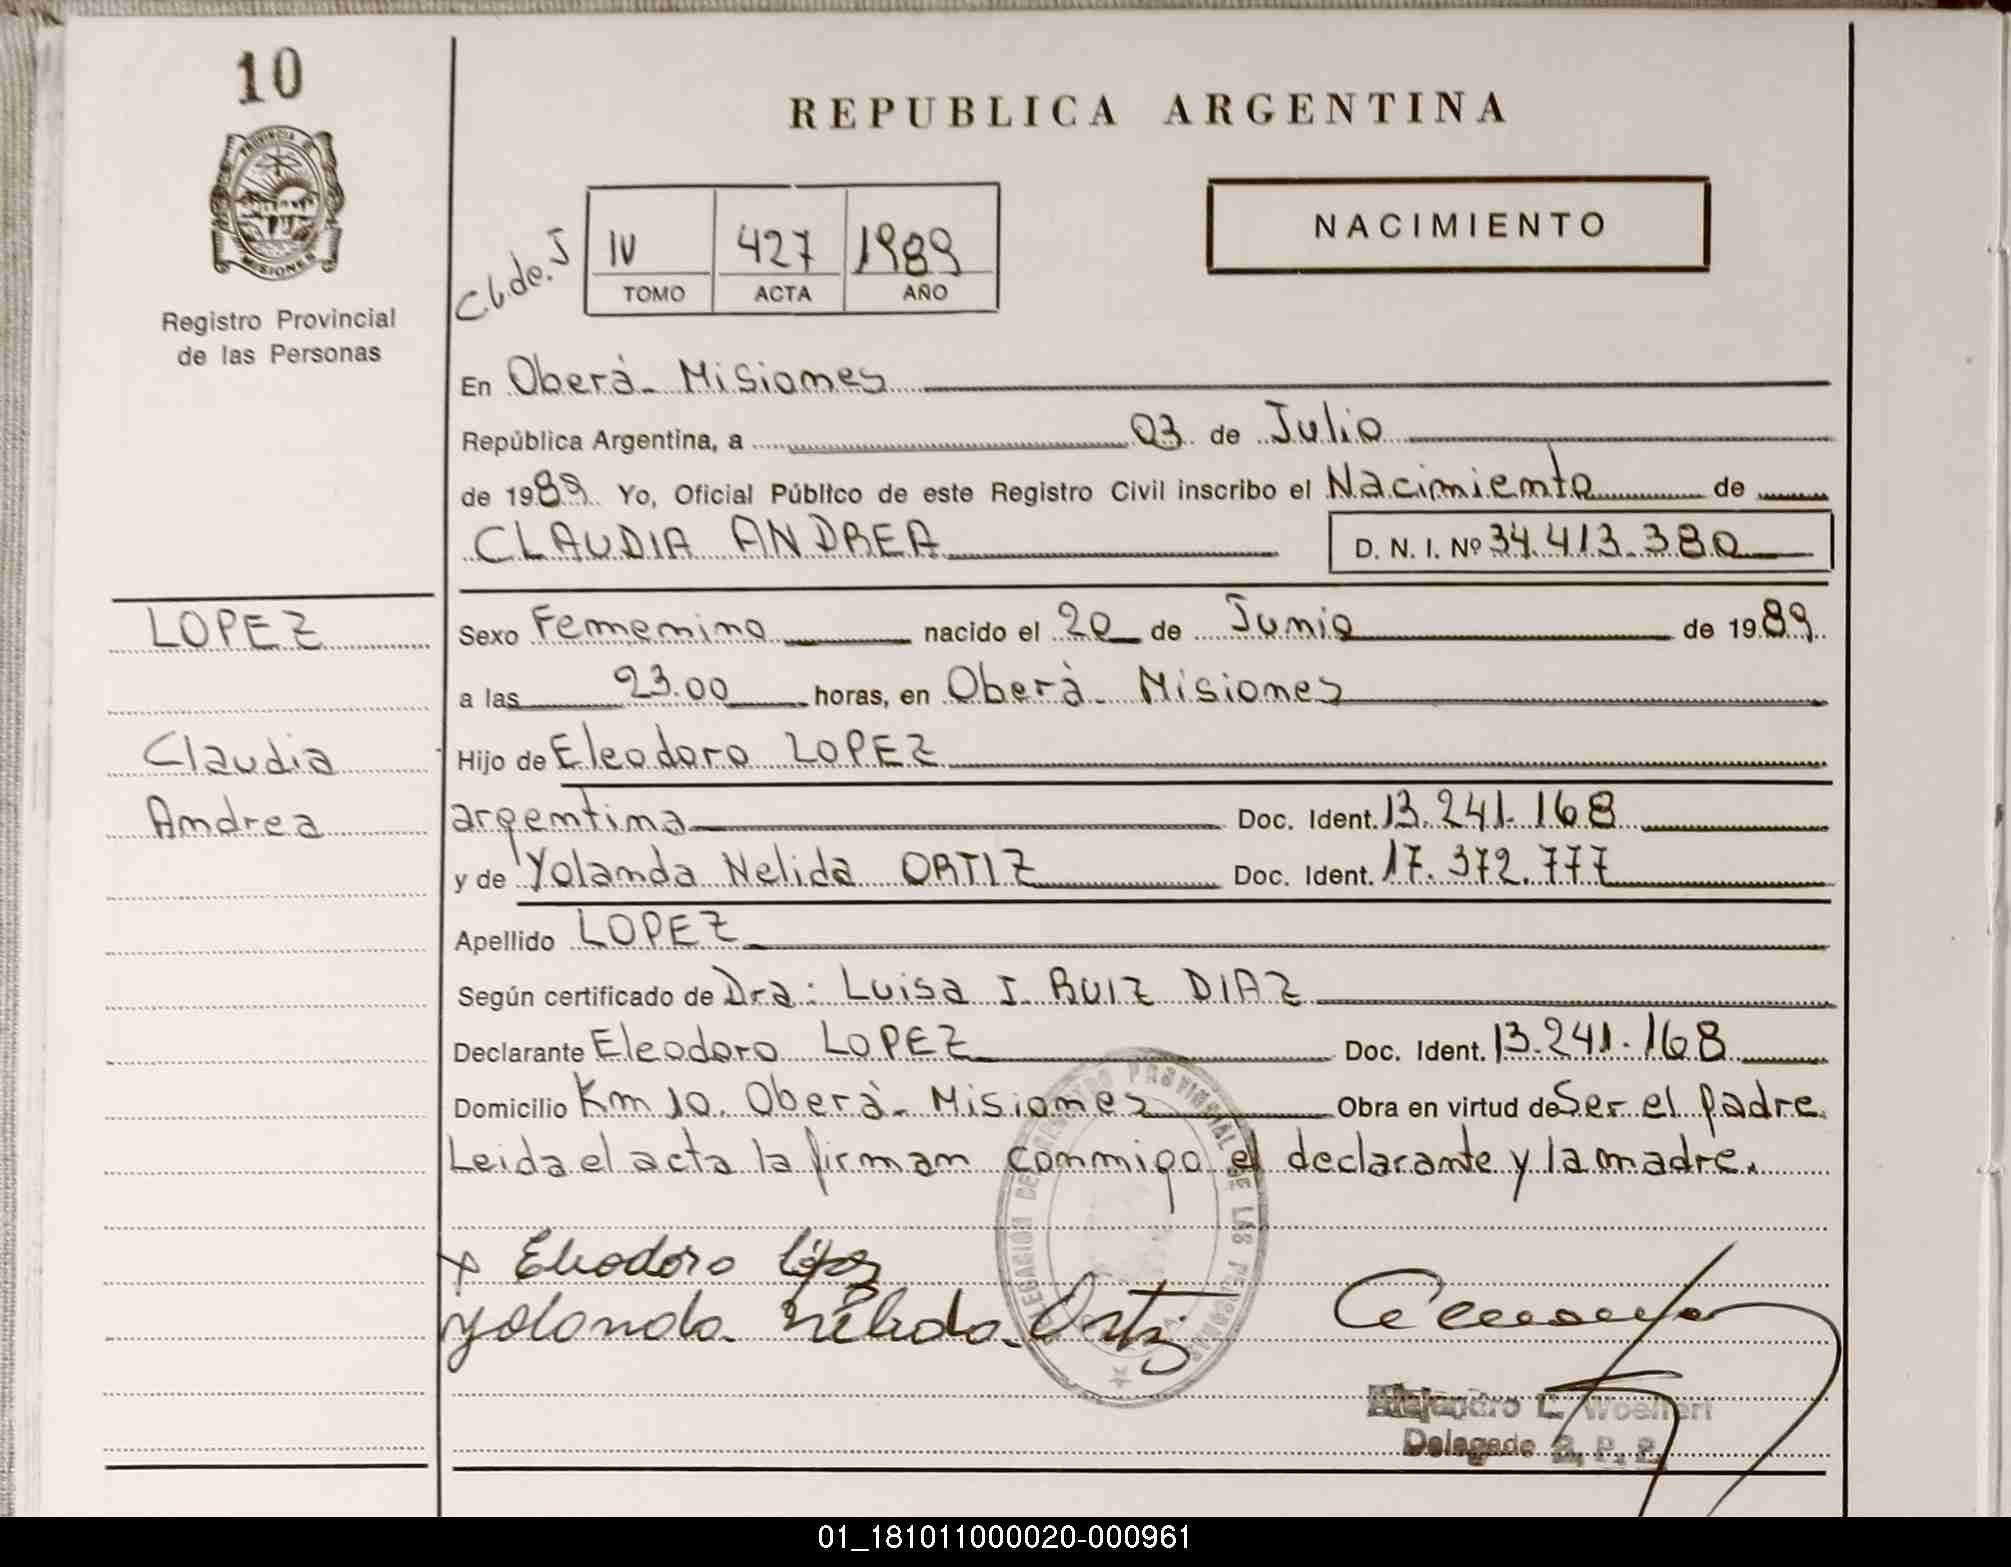 10
PROVINCIA D
MISIONES
Registro Provincial
de las Personas
REPUBLICA ARGENTINA
NACIMIENTO
C.b.de.J
IV 427 1989
TOMO ACTA AÑO
En Oberà - Misiones
República Argentina, a 03 de Julio
de 1989 Yo, Oficial Público de este Registro Civil inscribo el Nacimiento de
CLAUDIA ANDREA D. N. I. Nº 34.413.380
LOPEZ
Claudia
Andrea
Sexo Femenino nacido el 20 de Junio de 1989
a las 23.00 horas, en Oberà - Misiones
Hijo de Eleodoro LOPEZ
argentina Doc. Ident. 13.241.168
y de Yolanda Nelida ORTIZ Doc. Ident. 17.372.777
Apellido LOPEZ
Según certificado de Dra: Luisa I. RUIZ DIAZ
Declarante Eleodoro LOPEZ Doc. Ident. 13.241.168
Domicilio Km 10. Oberà - Misiones Obra en virtud de Ser el padre.
Leida el acta la firman conmigo el declarante y la madre.
x Eleodoro López
Yolanda Nélida Ortiz
DELEGACION DEL REGISTRO PROVINCIAL DE LAS PERSONAS
Alejandro L. Woelfert
Delegado R. P. P.
01_181011000020-000961